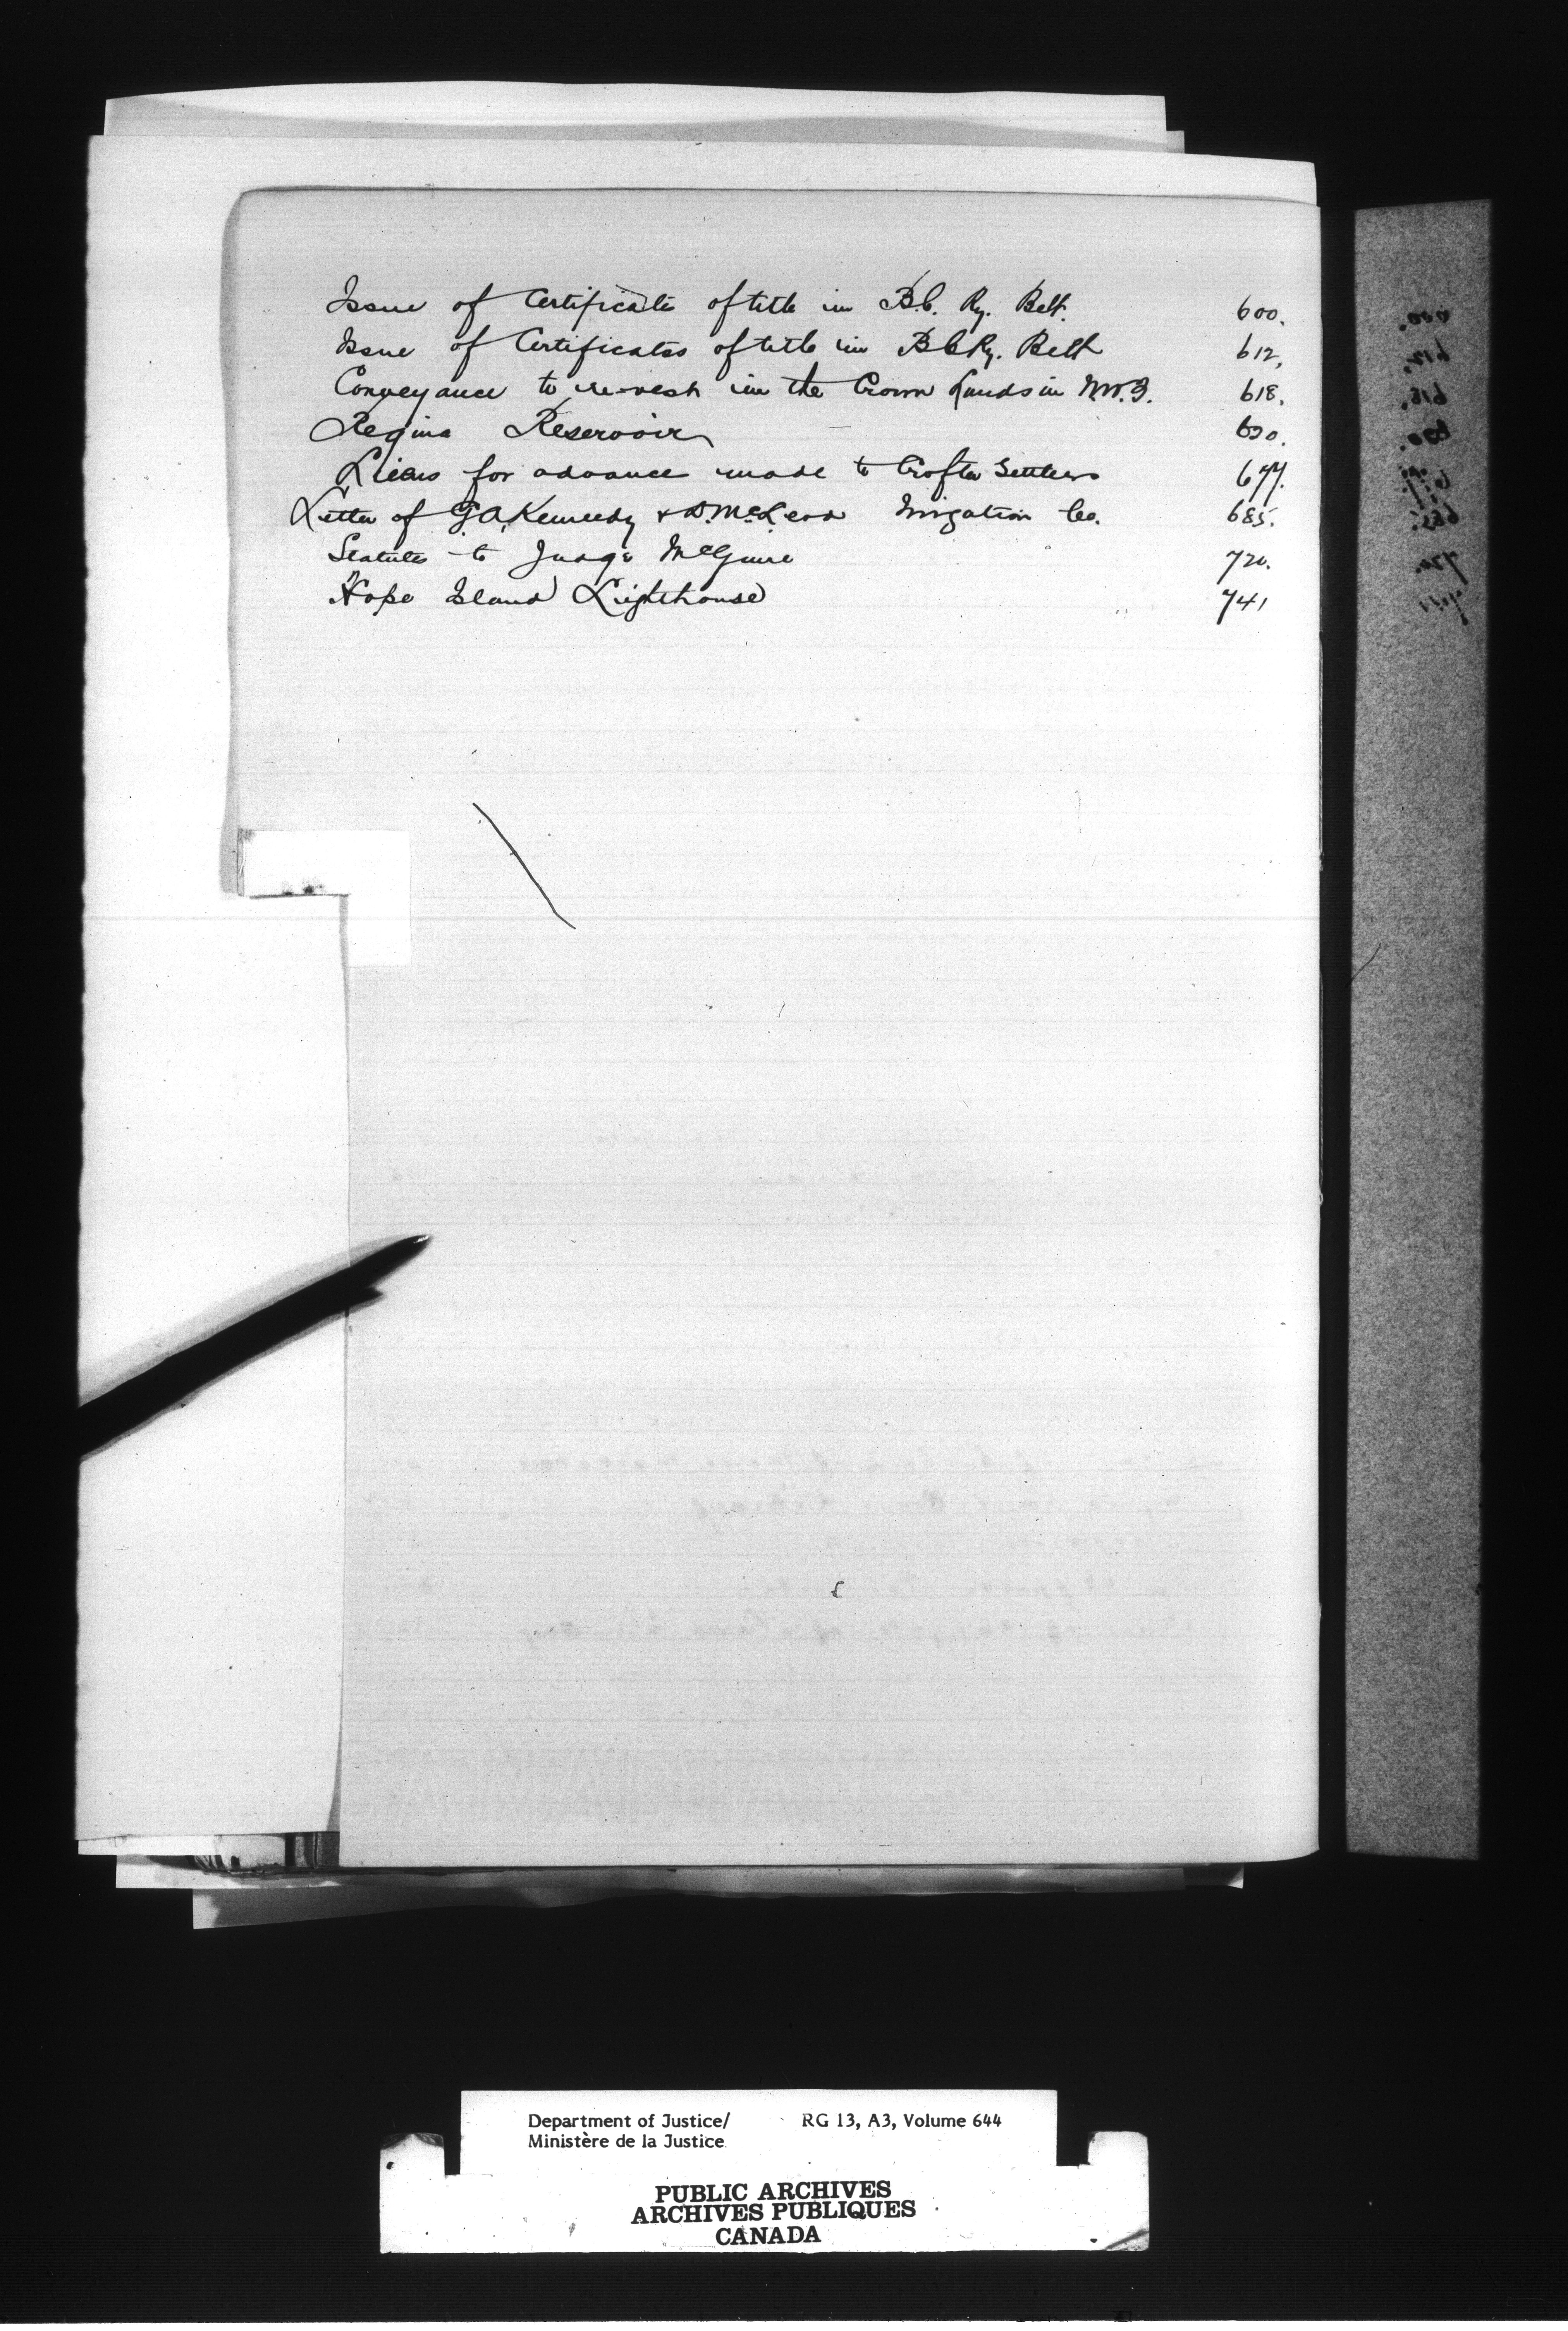 Issue of Certificate of title in B.C. Ry. Belt. 600.
Issue of Certificates of title in B C Ry. Belt 612,
Conveyance to re-vest in the Crown Lands in N.W.T. 618.
Regina Reservoir 620.
Liens for advance made to Crofter Settlers 677.
Letter of G. A. Kennedy & D. McLeod Irrigation Co. 685.
Statutes to Judge McGuire 720.
Hope Island Lighthouse 741
Department of Justice/ RG 13, A3, Volume 644
Ministère de la Justice
PUBLIC ARCHIVES
ARCHIVES PUBLIQUES
CANADA